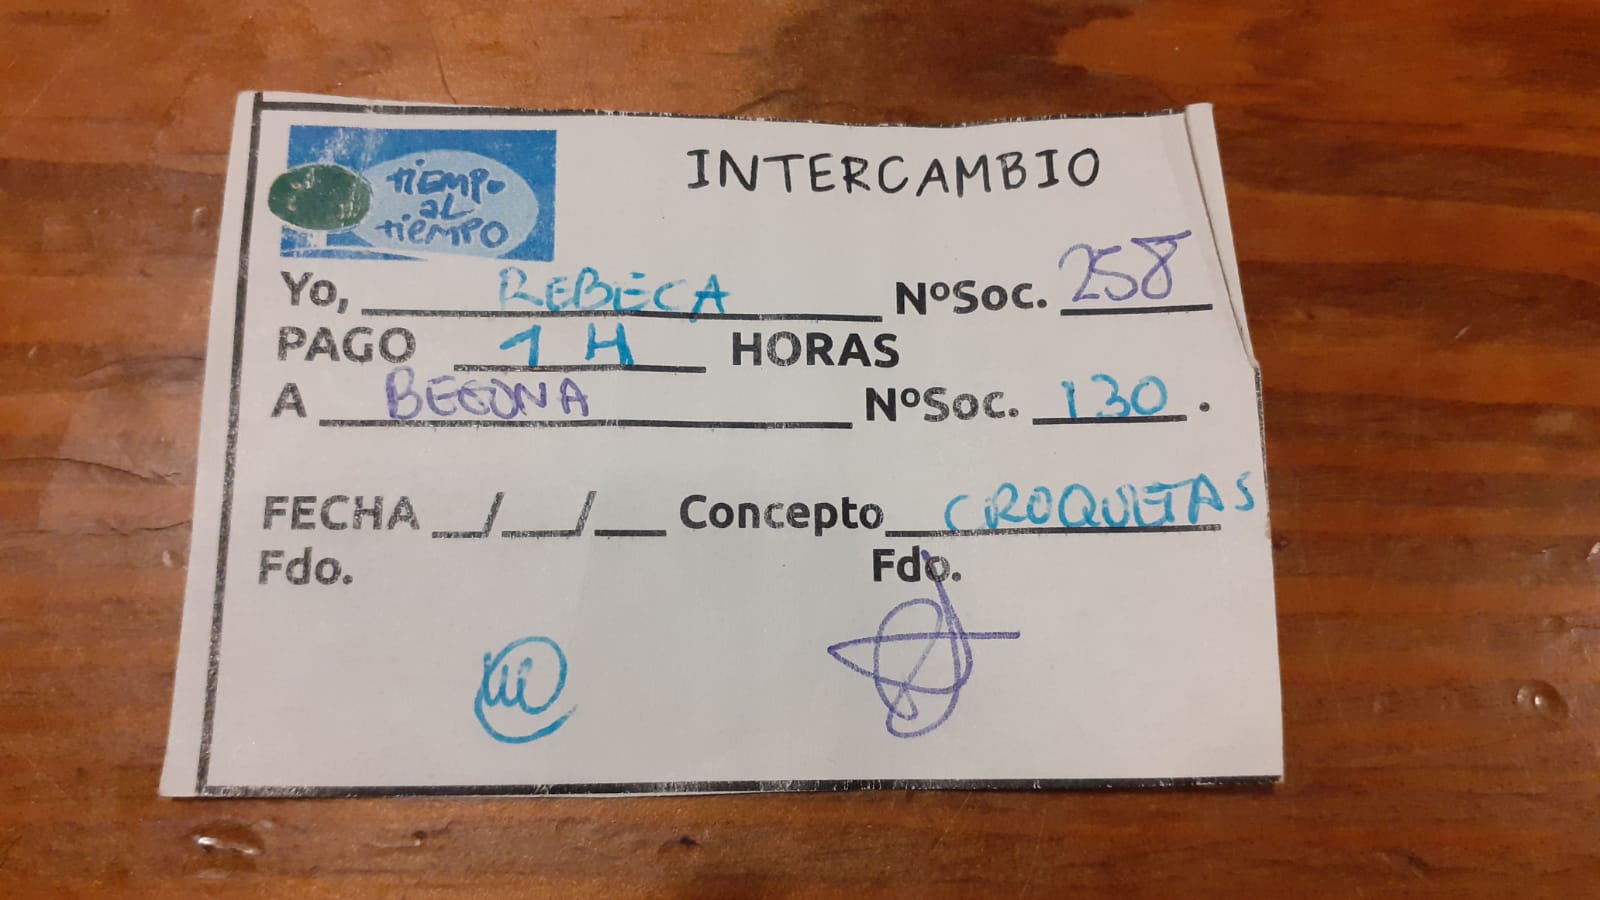 tiempo
al
tiempo
INTERCAMBIO
Yo, REBECA NºSoc. 258
PAGO 1 H HORAS
A BEGOÑA NºSoc. 130.
FECHA __/__/__ Concepto CROQUETAS
Fdo. Fdo.